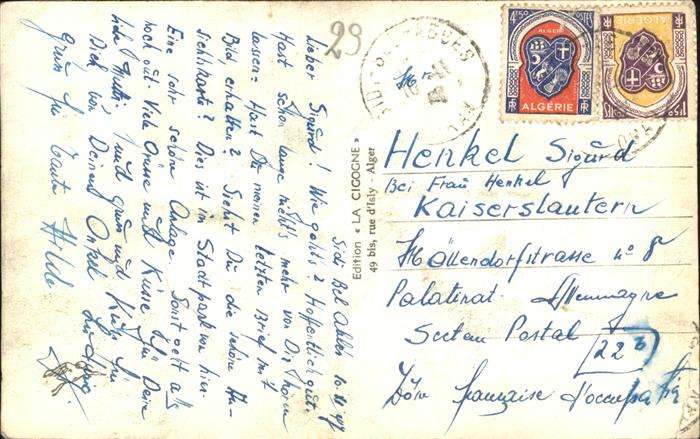 29
Sidi Bel Abbès 10.11.47
Lieber Sigurd! Wie gehts? Hoffentlich gut.
Hast schon lange nichts mehr von Dir hören
lassen. Hast Du meinen letzten Brief mit
Bild erhalten? Siehst Du die schöne An-
sichtskarte? Dies ist im Stadtpark von hier.
Eine sehr schöne Anlage. Sonst geht alles
noch gut. Viele Grüsse und Küsse für Deine
liebe Mutti. Und Gruss und Kuss für
Dich von Deinem Onkel
Gruss für Tante Hilde
Edition « LA CIGOGNE »
49 bis, rue d'Isly - Alger
SIDI-BEL-ABBES
4F50
POSTES
RF
ALGÉRIE
RF
ALGÉRIE
1F50
Henkel Sigurd
Bei Frau Henkel
Kaiserslautern
Möllendorfstrasse n° 8
Palatinat. Allemagne
Secteur Postal
22b
Zône française d'occupation